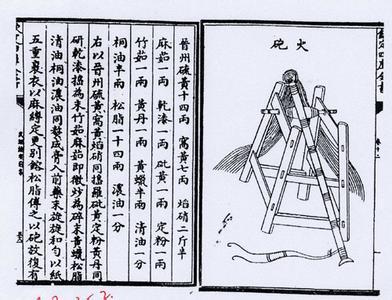 火砲
晉州硫黃十四兩　窩黃七兩　焰硝二斤半
麻茹一兩　乾漆一兩　砒黃一兩　定粉一兩
竹茹一兩　黃丹一兩　黃蠟半兩　清油一分
桐油半兩　松脂一十四兩　濃油一分
右以晉州硫黃窩黃焰硝同搗羅砒黃定粉黃丹同
研乾漆搗為末竹茹麻茹即微炒為碎末黃蠟松脂
清油桐油濃油同熬成膏入前藥末旋旋和勻以紙
五重裹衣以麻縛定更別鎔松脂傅之以砲放復有